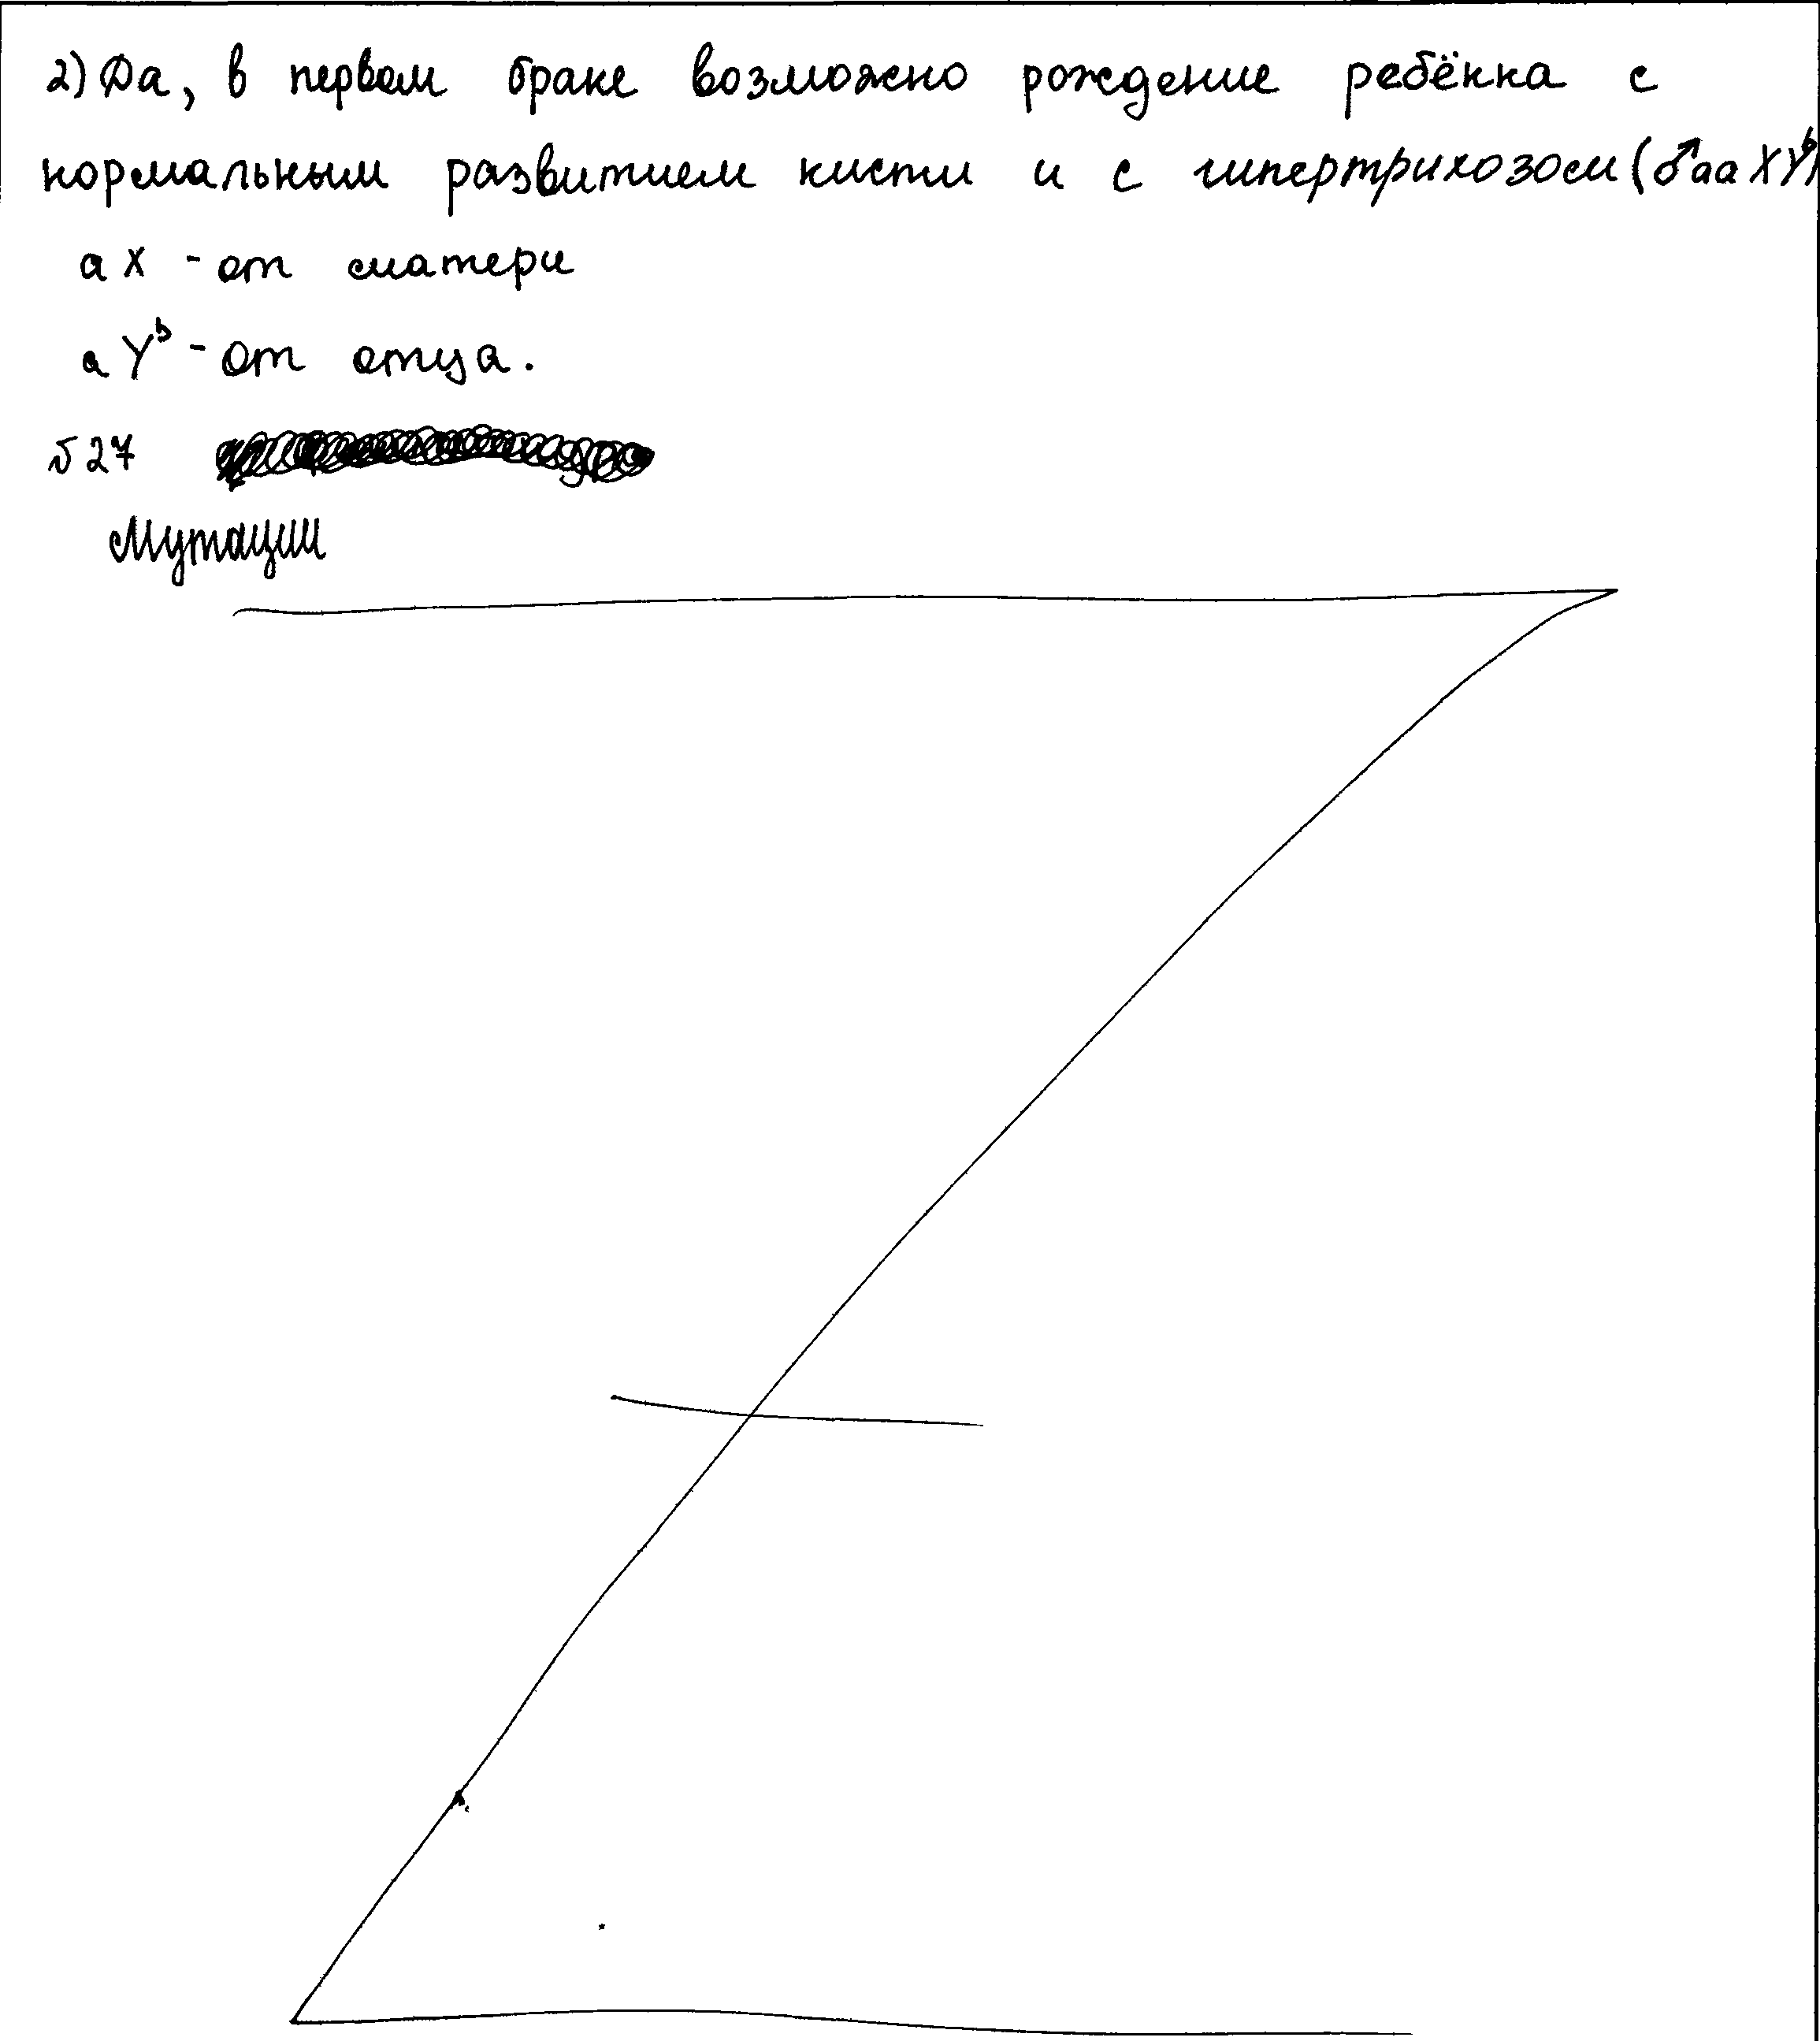 2) Да, в первом браке возможно рождение ребёнка с
нормальным развитием кисти и с гипертрихозом (♂aaXYᵇ)
aX - от матери
aYᵇ - от отца.
№27
Мутации